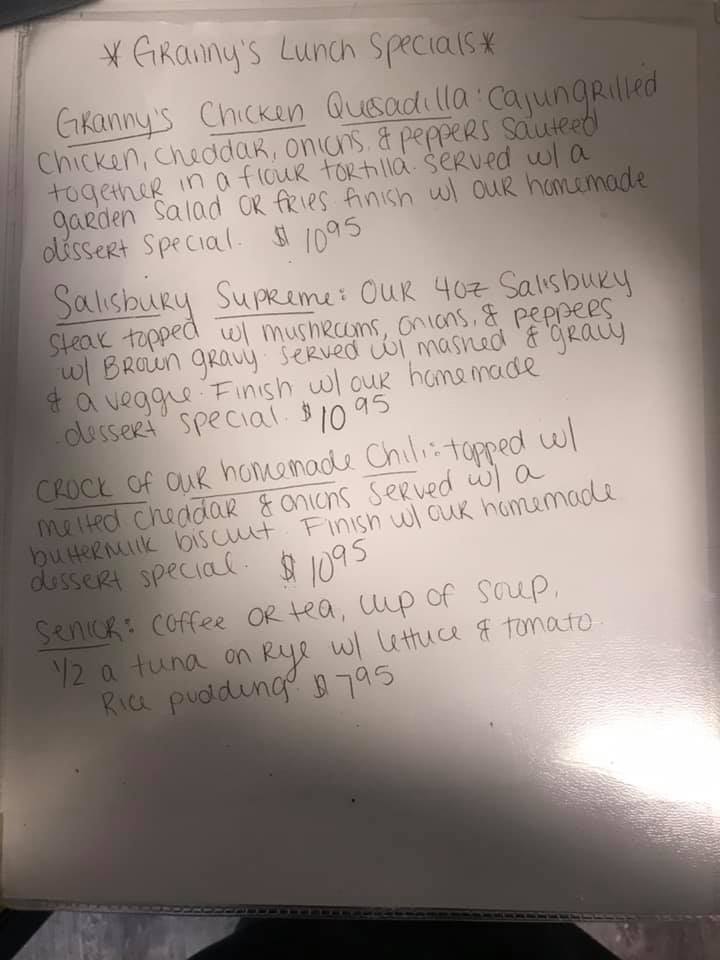 * Granny's Lunch Specials *
Granny's Chicken Quesadilla: Cajun grilled
Chicken, Cheddar, onions, & peppers sauteed
together in a flour tortilla. Served w/ a
garden salad or fries finish w/ our homemade
dessert special. $ 10 95
Salisbury Supreme: Our 4oz Salisbury
Steak topped w/ mushrooms, onions, & peppers
w/ Brown gravy. Served w/ mashed & gravy
& a veggie. Finish w/ our homemade
dessert special. $ 10 95
Crock of our homemade Chili: topped w/
melted cheddar & onions served w/ a
buttermilk biscuit. Finish w/ our homemade
dessert special. $ 10 95
Senior: Coffee or tea, cup of soup,
1/2 a tuna on Rye w/ lettuce & tomato.
Rice pudding. $ 7 95